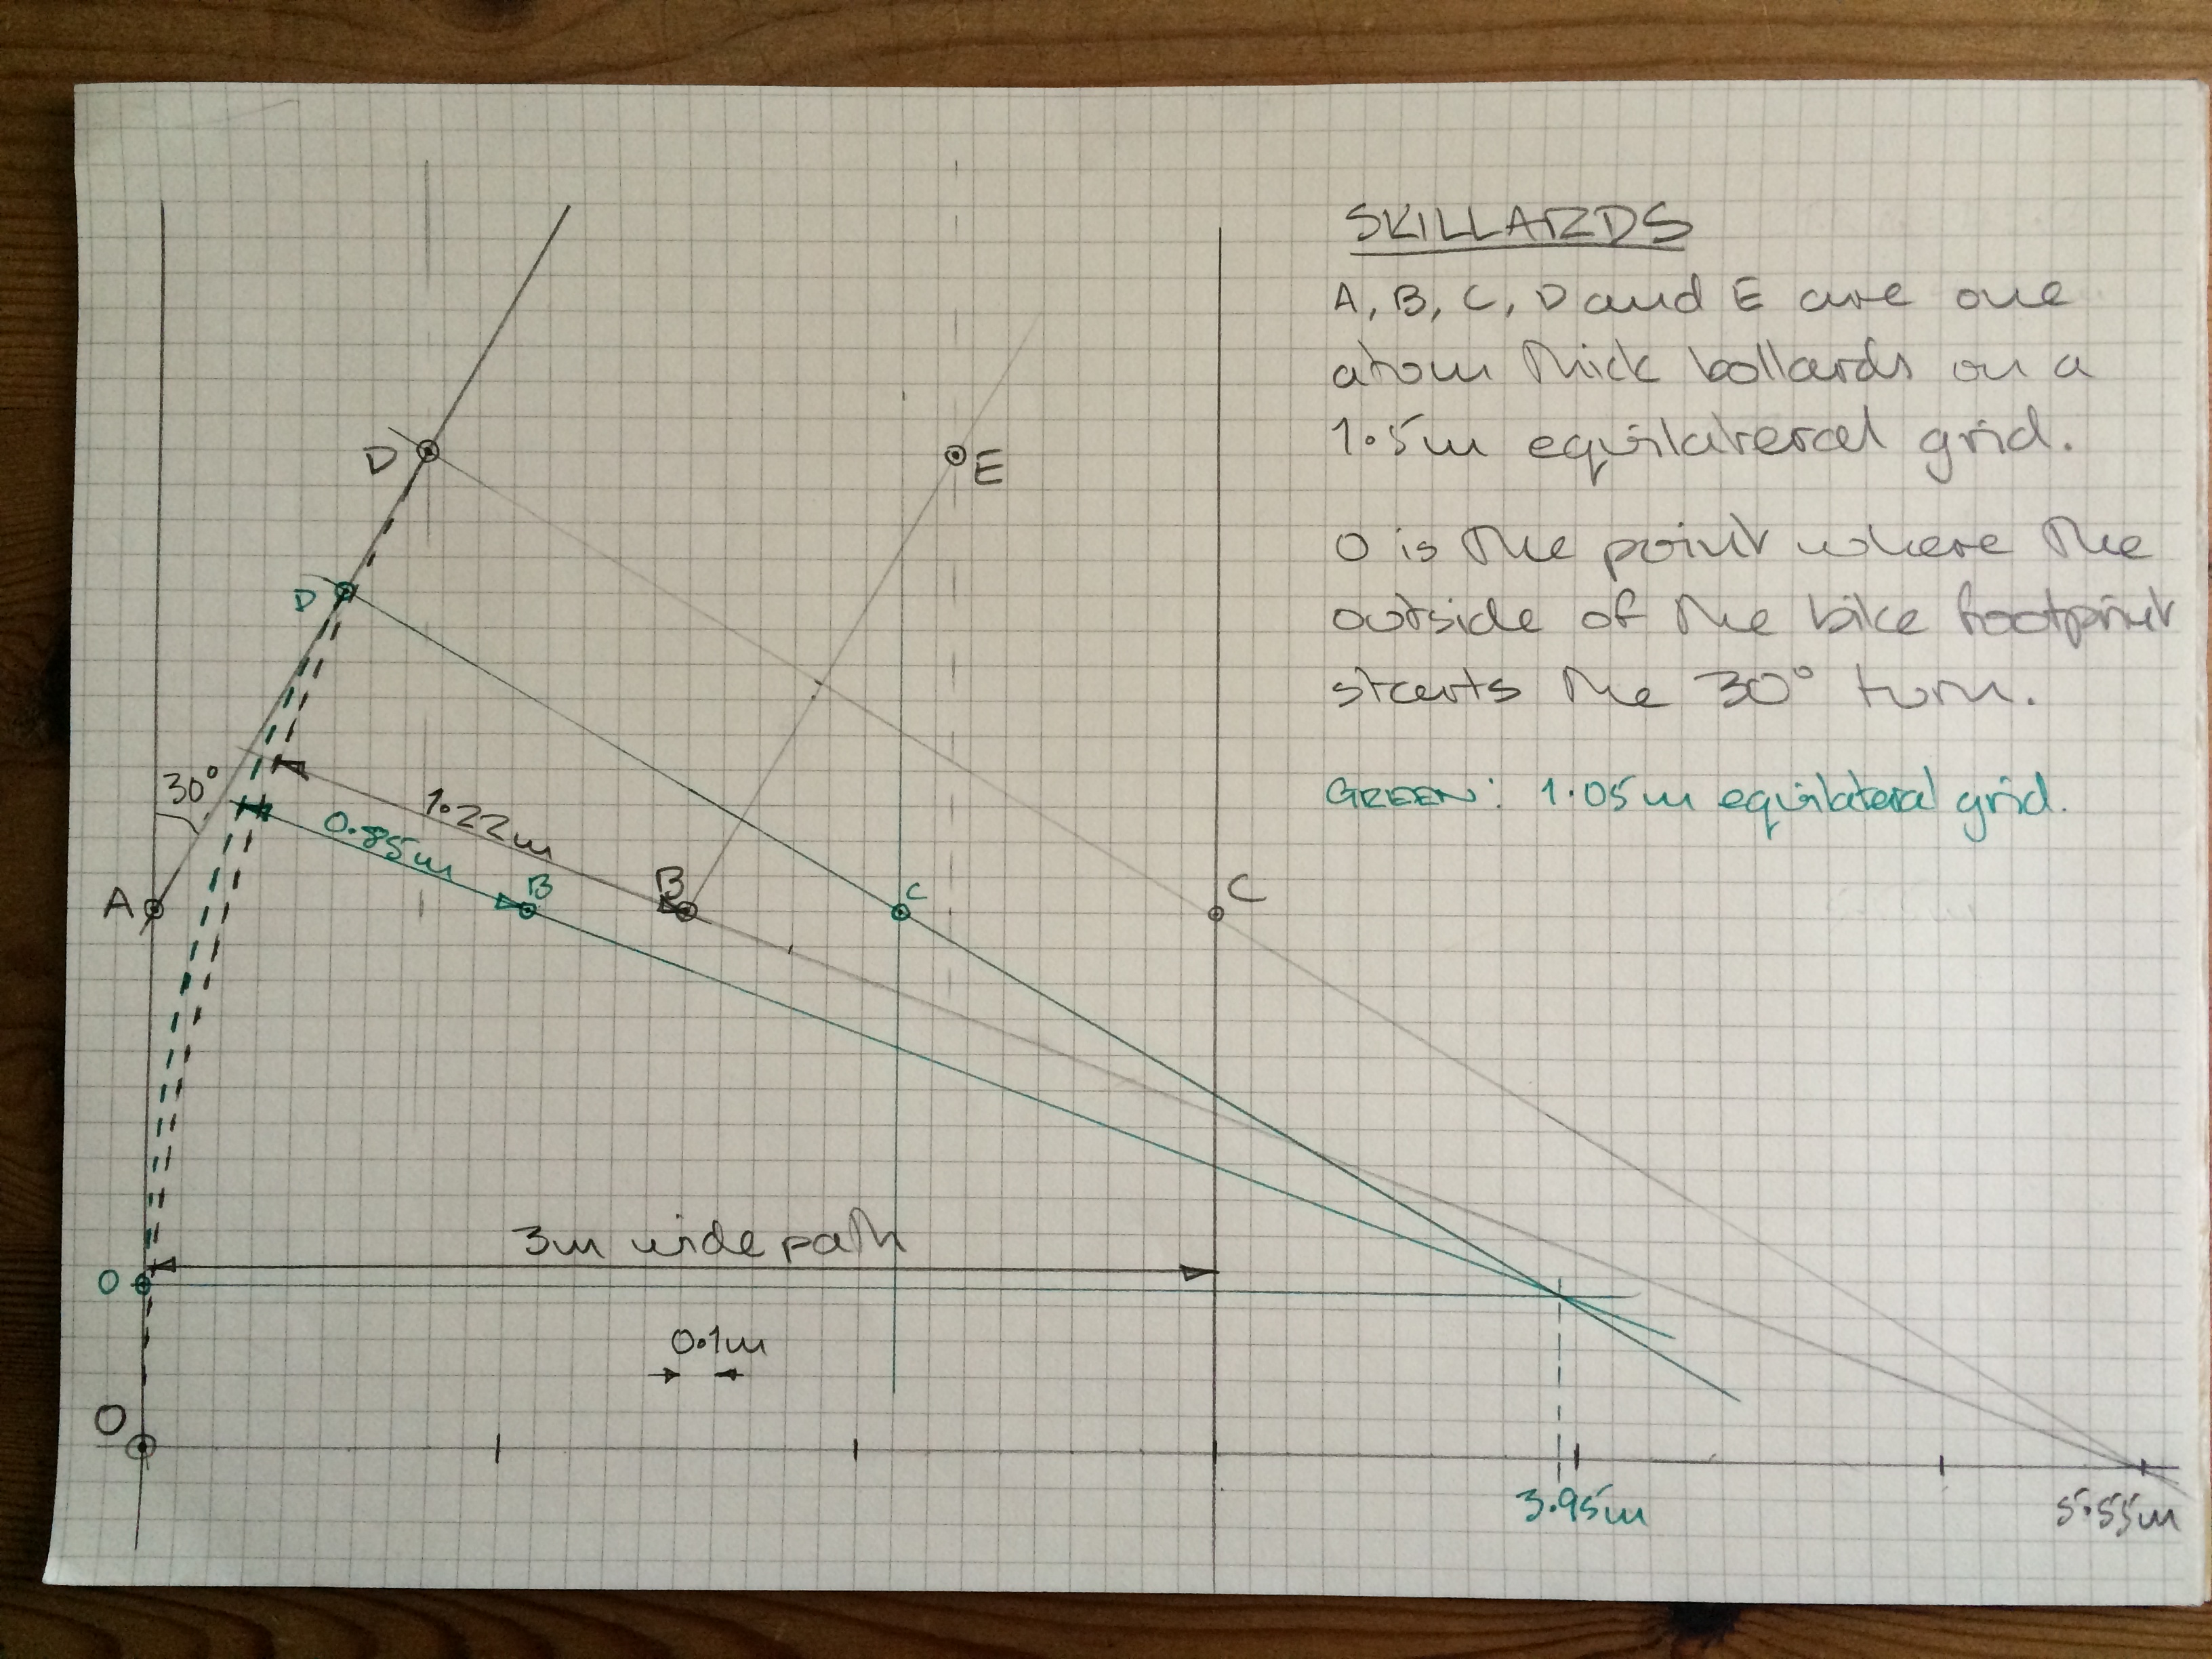 SKILLARDS
A, B, C, D and E are one
atom thick bollards on a
1.5m equilateral grid.
O is the point where the
outside of the bike footprint
starts the 30° turn.
GREEN: 1.05m equilateral grid.
D
E
D
30°
1.22m
0.85m
A
B
B
C
C
3m wide path
O
0.1m
O
3.95m
5.55m